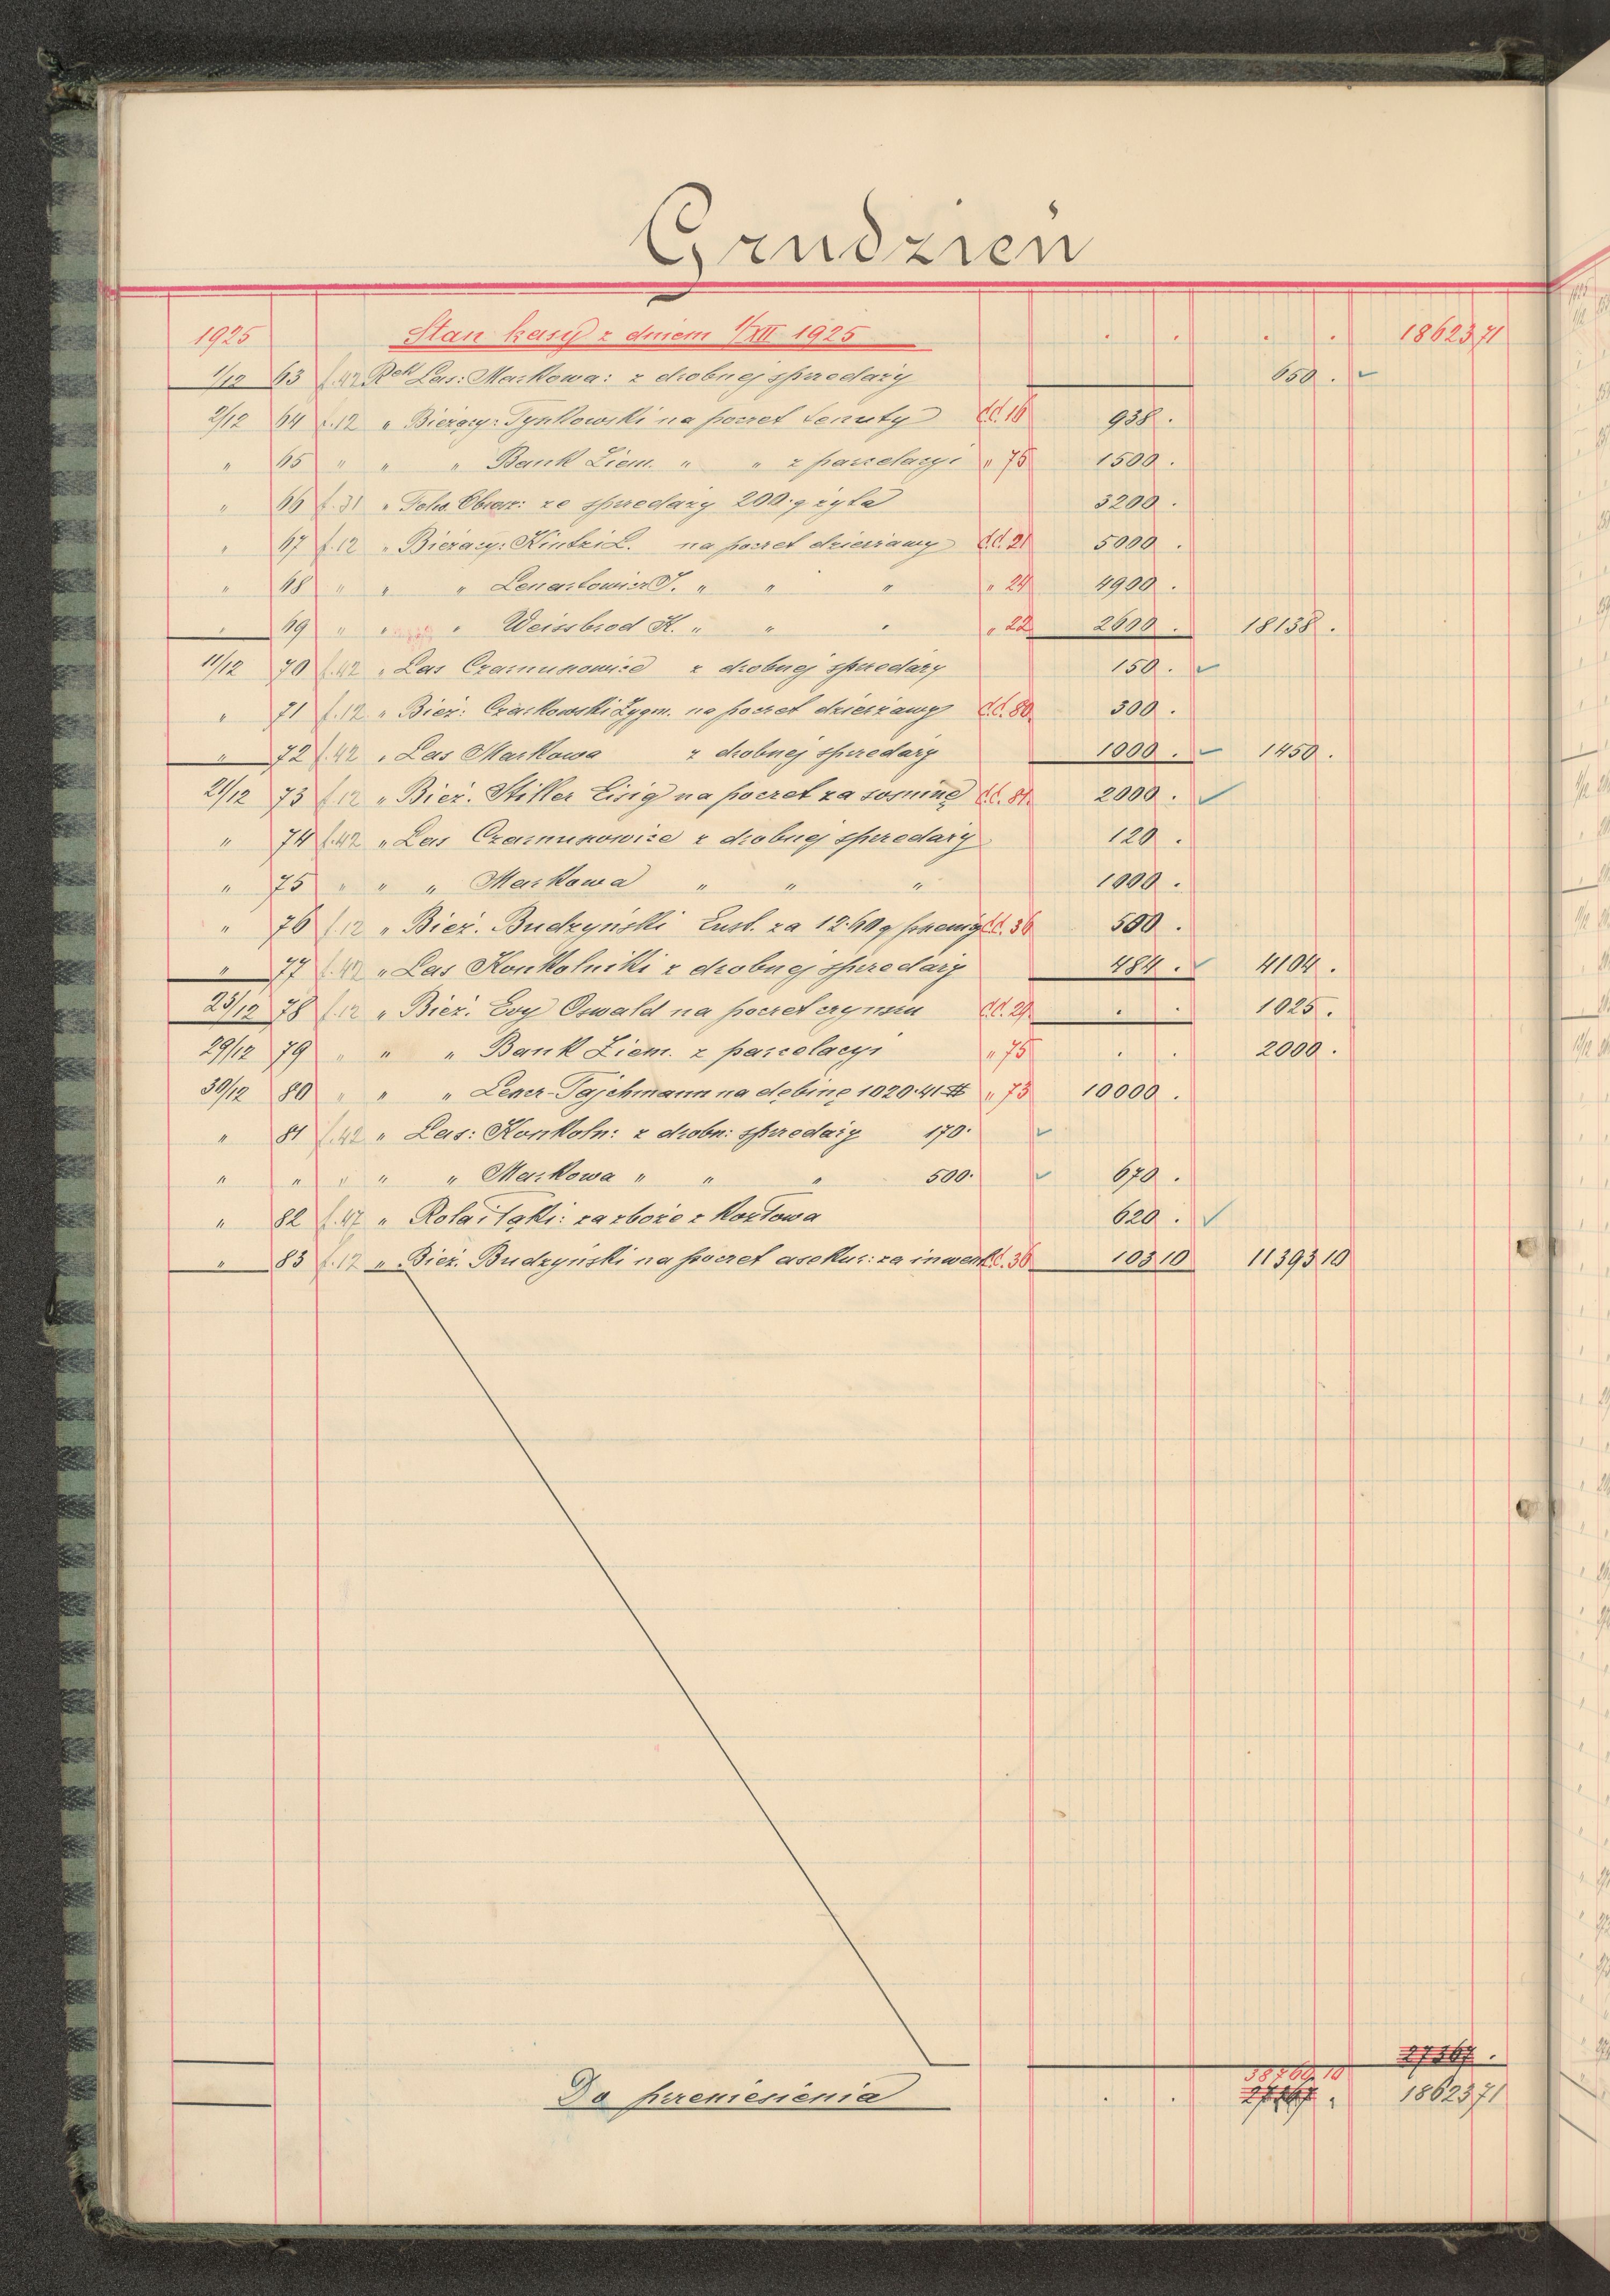 Grudzień
1925 Stan kasy z dniem 1/XII 1925 . . . . 18623 71
1/12 63 f.42 Rek Las: Markowa: z drobnej sprzedaży 650 .
2/12 64 f.12 " Bieżący: Tynkowski na poczet tenuty Cd. 16 938 .
" 65 " " " Bank Ziem. " " z parcelacyi " 75 1500 .
" 66 f.31 " ze sprzedaży 200 q żyta 3200 .
" 67 f.12 " Bieżący: Kintzi L. na poczet dzierżawy Cd. 21 5000 .
" 68 " " " Lenartowicz J. " " " " 24 4900 .
" 69 " " " Weissbrod H. " " " " 22 2600 . 18138 .
11/12 70 f.42 " Las z drobnej sprzedaży 150 .
" 71 f.12 " Bież: Czarkowski Zygm. na poczet dzierżawy Cd. 80 300 .
" 72 f.42 " Las Markowa z drobnej sprzedaży 1000 . 1450 .
21/12 73 f.12 " Bież. Stiller Eisig na poczet za sosninę Cd. 81 2000 .
" 74 f.42 " Las z drobnej sprzedaży 120 .
" 75 " " " Markowa " " " 1000 .
" 76 f.12 " Bież. Budzyński Eust. za 12·60 q pszenicy Cd. 36 500 .
" 77 f.42 " Las Konkolniki z drobnej sprzedaży 484 . 4104 .
23/12 78 f.12 " Bież. Evy Oswald na poczet czynszu Cd. 29 . . 1025 .
29/12 79 " " " Bank Ziem. z parcelacyi " 75 . . 2000 .
30/12 80 " " " Tajchmann na dębinę 1020·41 # " 73 10000 .
" 81 f.42 " Las: Konkoln: z drobn: sprzedaży 170·
" " " " " Markowa " " " 500· 670 .
" 82 f.47 " Rola i łąki: za zboże z Kozłowa 620 .
" 83 f.12 " Bież. Budzyński na poczet asekur: za inwent. Cd. 36 103 10 11393 10
27367 .
38760 10
Do przeniesienia . . 27367 . 18623 71